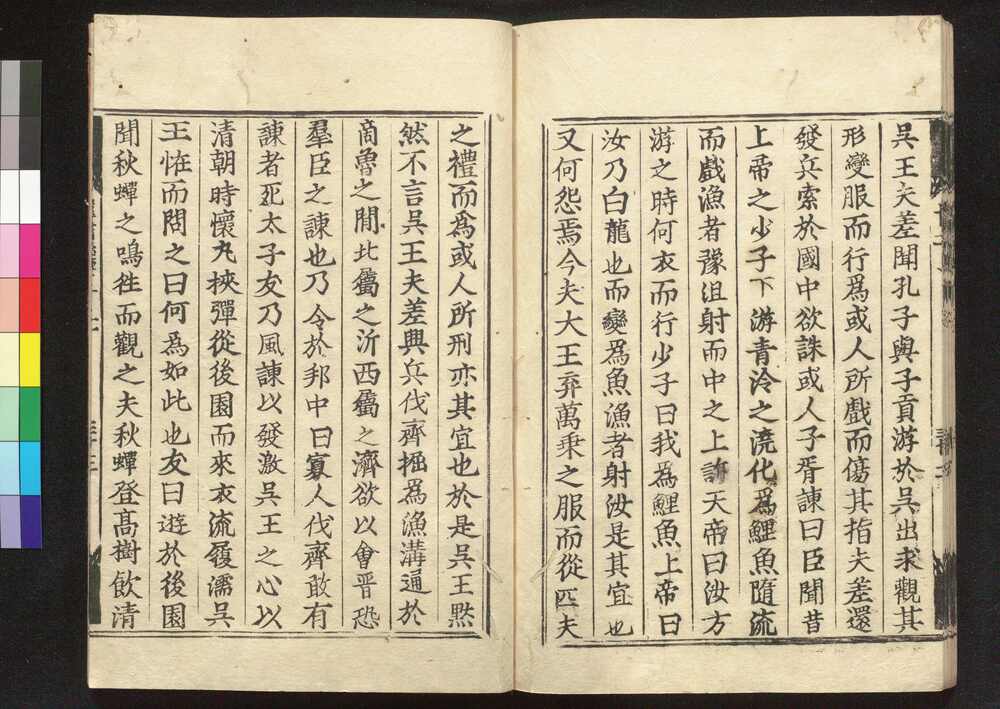 吳王夫差聞孔子與子貢游於吳出求觀其
形變服而行爲或人所戲而傷其指夫差還
發兵索於國中欲誅或人子胥諫曰臣聞昔
上帝之少子下游青泠之淵化爲鯉魚隨流
而戲漁者豫沮射而中之上訴天帝曰汝方
游之時何衣而行少子曰我爲鯉魚上帝曰
汝乃白龍也而變爲魚漁者射汝是其宜也
又何怨焉今夫大王弃萬乘之服而從匹夫
之禮而爲或人所刑亦其宜也於是吳王默
然不言吳王夫差興兵伐齊掘爲漁溝通於
商魯之閒北屬之沂西屬之濟欲以會晋恐
羣臣之諫也乃令於邦中曰寡人伐齊敢有
諫者死太子友乃風諫以發激吳王之心以
清朝時懷丸挾彈從後園而來衣流履濡吳
王恠而問之曰何為如此也友曰遊於後園
聞秋蟬之鳴徃而觀之夫秋蟬登髙樹飲清